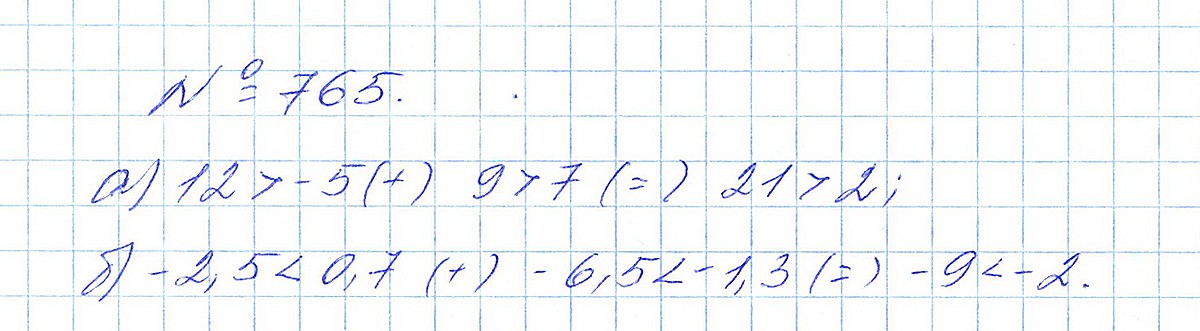 № 765.
а) 12 > -5 (+) 9 > 7 (=) 21 > 2;
б) -2,5 < 0,7 (+) -6,5 < -1,3 (=) -9 < -2.